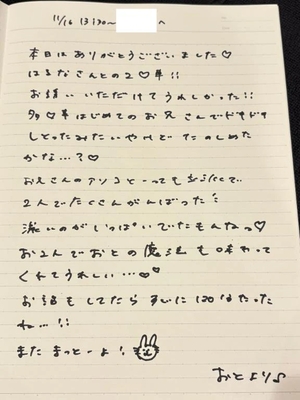 11/16 13:30〜 へ
本日はありがとうございました♡
はるなさんとの2♡単!!
お誘いいただけてうれしかった!!
多♡単はじめてのお兄さんでドキドキ
しとったみたいやけどたのしめた
かな…?♡
お兄さんのアソコとーっても立派で
2人でたくさんがんばった!
激しいのがいっぱいでたもんなっ♡
お2人でおとの魔法も味わって
くれてうれしい…♡♡
お話もしてたらすぐに120分たった
ね…!!
またまっとーよ!
おとより♪